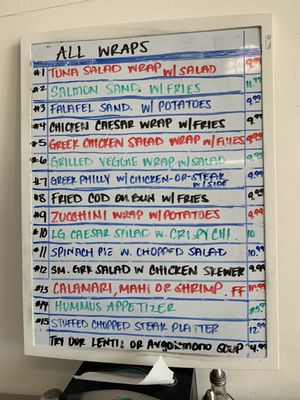 ALL WRAPS
#1 TUNA SALAD WRAP W/ SALAD 9.99
#2 SALMON SAND. W/ FRIES 11.99
#3 FALAFEL SAND. W/ POTATOES 9.99
#4 CHICKEN CAESAR WRAP W/ FRIES 9.99
#5 GREEK CHICKEN SALAD WRAP W/ FRIES 9.99
#6 GRILLED VEGGIE WRAP W/ SALAD 9.99
#7 GREEK PHILLY W/ CHICKEN-OR-STEAK W/ SIDE 9.99
#8 FRIED COD ON BUN W/ FRIES 9.99
#9 ZUCCHINI WRAP W/ POTATOES 9.99
#10 LG CAESAR SALAD W. CRISPY CHI. 10.
#11 SPINACH PIE W. CHOPPED SALAD 10.99
#12 SM. GRK SALAD W CHICKEN SKEWER 9.99
#13 CALAMARI, MAHI OR SHRIMP. FF
#14 HUMMUS APPETIZER
#15 STUFFED CHOPPED STEAK PLATTER 12.99
TRY OUR LENTIL OR SOUP 4.99